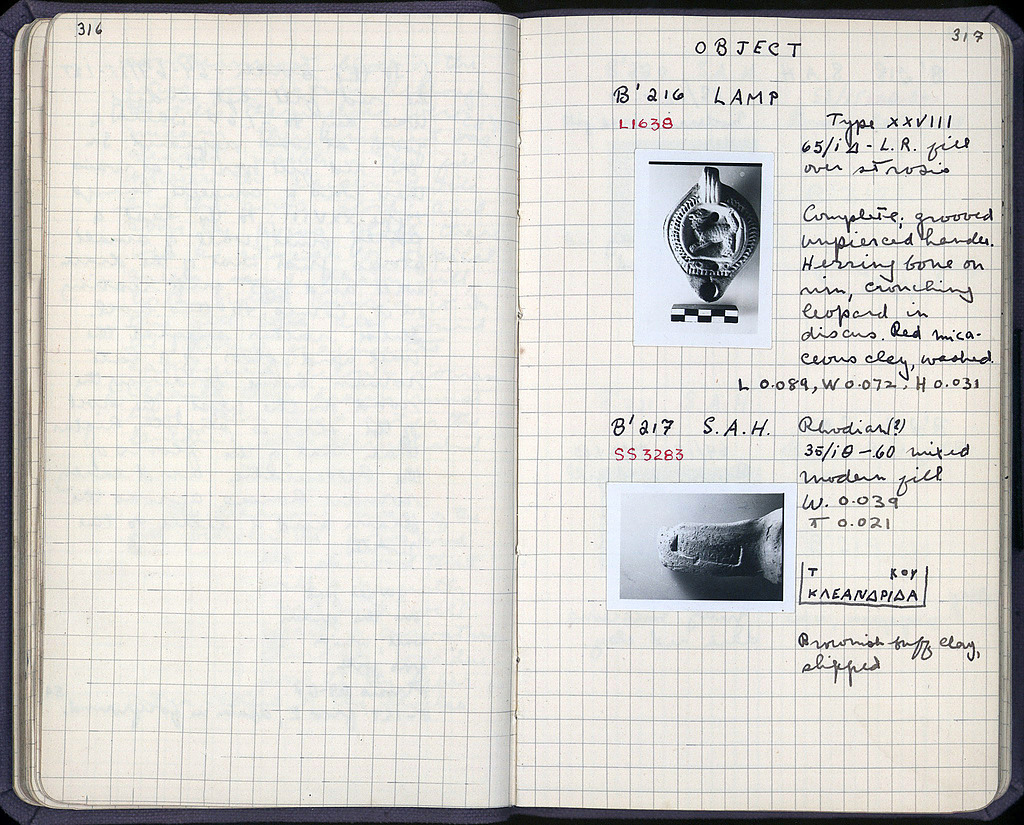 316
317
OBJECT
B' 216 LAMP
L1638
Type XXVIII
65/ΙΔ - L.R. fill
over strosis
Complete; grooved
unpierced handle.
Herring bone on
rim, crouching
leopard in
discus. Red mica-
ceous clay, washed.
L 0.089, W 0.072, H 0.031
B' 217 S.A.H.
SS 3283
Rhodian(?)
35/ΙΘ - 60 mixed
modern fill
W. 0.039
T 0.021
Τ ΚΟΥ
ΚΛΕΑΝΔΡΙΔΑ
Brownish buff clay,
slipped